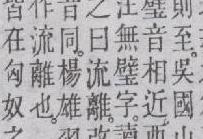 則至。吳國
璧音相近
注無璧字。讀
之曰流離。改
音同。楊雄
作流離也。
在匈奴之